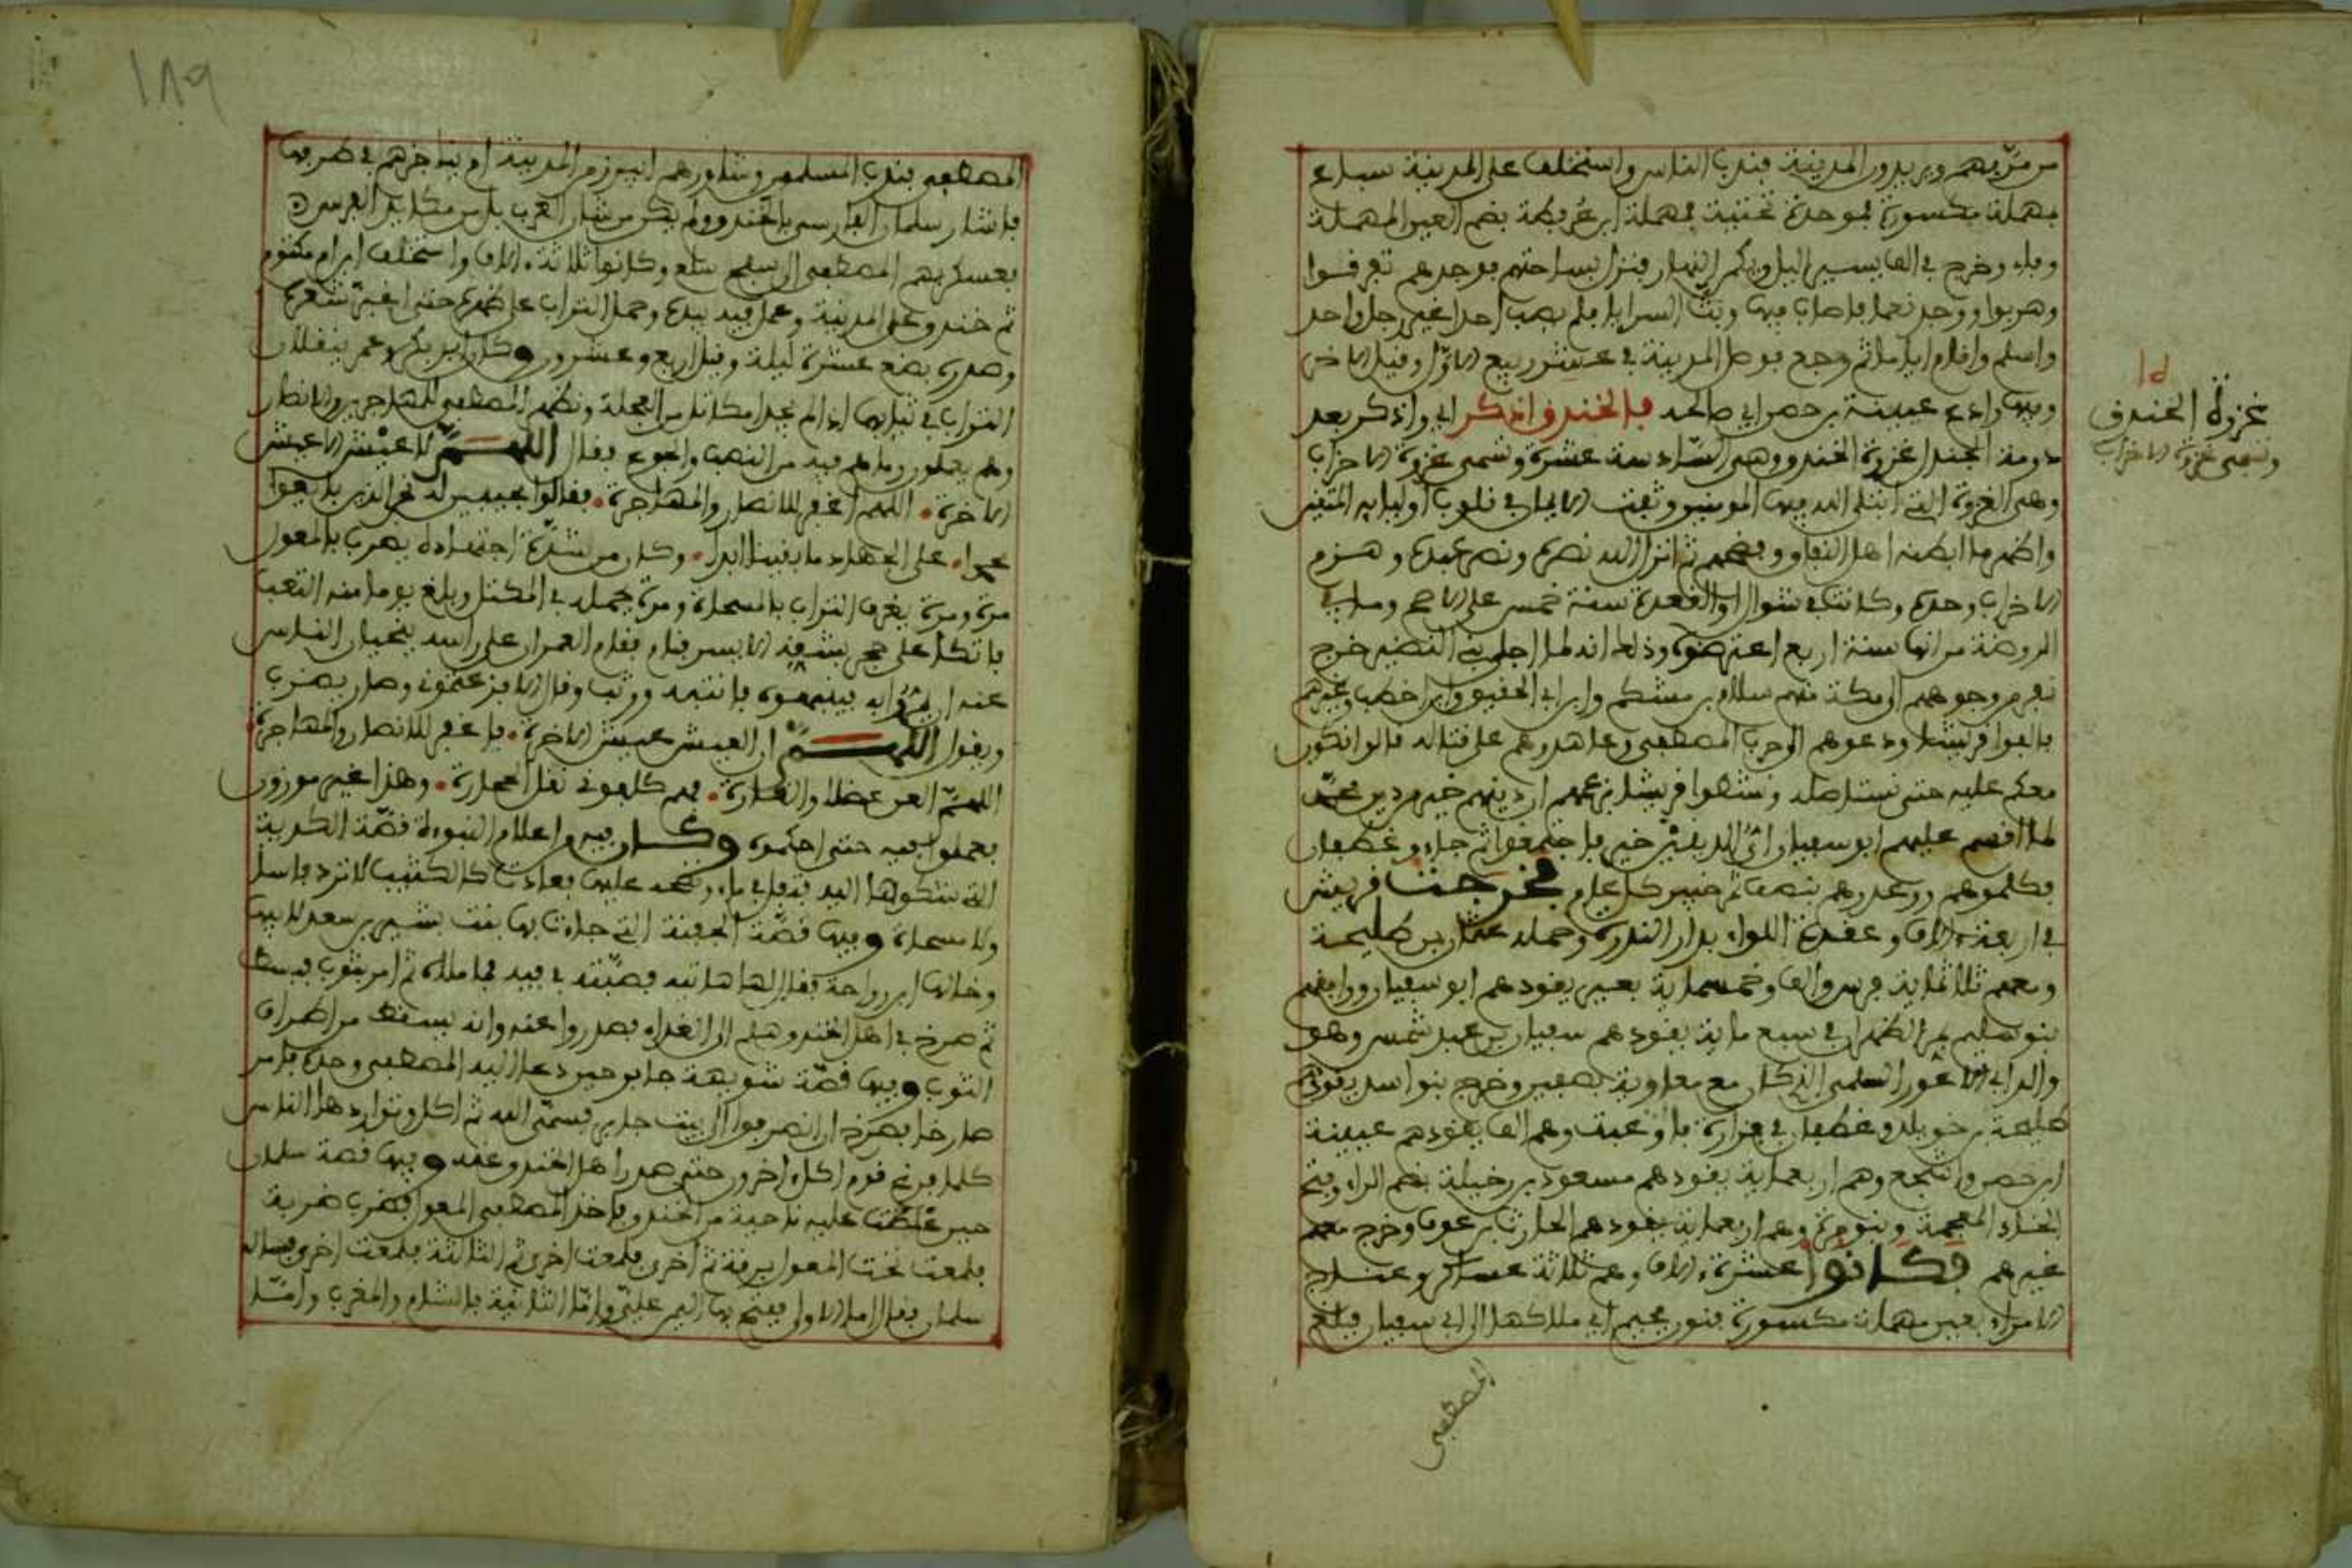 من مر بهم ويريدون المدينة فندب الناس واستخلف على المدينة سباع
مهملة مكسورة فموحدة تحتية فمهملة ابن عرفطة بضم العين المهملة
وفاء وخرج في الف يسير اليل ويكمن النهار فنزل بساحتهم فوجدهم تفرقوا
وهربوا ووجد نعما فاصاب منها وبث السرايا فلم يصب احدا غير رجل واحد
واسلم واقام اياما ثم رجع فوصل المدينة في عشرين ربيع الاول وقيل الاخر
وفيها وادع عيينة بن حصن اي صالحه فالخندق اذكر اي واذكر بعد
دومة الجندل غزوة الخندق وهي السادسة عشرة وتسمى غزوة الاحزاب
غزوة الخندق
وتسمى غزوة الاحزاب
وهي الغزوة التي ابتلى الله فيها المومنين وثبت الايمان في قلوب اوليائه المتقين
واظهر ما ابطنه اهل النفاق وفضحهم ثم انزل الله نصره ونصر عبده وهزم
الاحزاب وحده وكانت في شوال او القعدة سنة خمس على الاصح وما في
الروضة من انها سنة اربع اعترضوه وذلك انه لما اجلى بني النضير خرج
نفر من وجوههم الى مكة منهم سلام بن مشكم وابن ابي الحقيق وابن اخطب وغيرهم
فالفوا قريشا ودعوهم الى حرب المصطفى وعاهدوهم على قتاله قالوا نكون
معكم عليه حتى نستاصله ونشطوا قريشا بزعمهم ان دينهم خير من دين محمد
لما اقسم عليهم ابو سفيان اي الدينين خير فاجتمعوا ثم جاءو غطفان
فكلموهم ووعدوهم بنصف تمر خيبر كل عام فخرجت قريش
في اربعة ءالاف وعقدوا اللواء بدار الندوة وحمله عثمان بن طليحة
ومعهم ثلاثماية فرس والف وخمسماية بعير يقودهم ابو سفيان ووافقهم
بنو سليم بمر الظهران في سبع ماية يقودهم سفيان بن عبد شمس وهو
والد ابي الاعور السلمي الذي كان مع معاوية بصفين وخرج بنو اسد يقودهم
طليحة بن خويلد وغطفان في فزارة فاوعبت وهم الف يقودهم عيينة
ابن حصن واشجع وهم اربعماية يقودهم مسعود بن رخيلة بضم الراء وفتح
الخاء المعجمة وبنو مرة وهم اربعماية يقودهم الحارث بن عوف وخرج معهم
غيرهم فكانوا عشرة ءالاف وهم ثلاثة عساكر وعناج
الامراء بعين مهملة مكسورة فنون فجيم اي ملاكها الى ابي سفيان فبلغ
المصطفى
١٨٩
المصطفى فندب المسلمين وشاورهم ايبرز من المدينة او يناجزهم في طرقها
فاشار سلمان الفارسي بالخندق ولم يكن من شان العرب بل من مكايد الفرس
فعسكر بهم المصطفى الى سفح سلع وكانوا ثلاثة ءالاف واستخلف ابن ام مكتوم
ثم خندق على المدينة وعمل فيه بيده وحمل التراب على ظهره حتى اغبر شعره
وصدره بضع عشرة ليلة وقيل اربع وعشرون وكان ابو بكر وعمر ينقلان
التراب في ثيابهما اذا لم يجدا مكاتل من العجلة ونظر المصطفى للمهاجرين والانصار
وهم يحفرون وما هم فيه من النصب والجوع فقال اللهم لا عيش الا عيش
الاخرة اللهم اغفر للانصار والمهاجرة فقالوا مجيبين له نحن الذين بايعوا
محمدا على الجهاد ما بقينا ابدا وكان من شدة اجتهاده يضرب بالمعول
مرة ومرة يغرف التراب بالمسحاة ومرة يحمله في المكتل وبلغ يوما منه التعب
فاتكا على حجر بشقه الايسر فنام فقام العمران على راسه ينحيان الناس
عنه ان يمروا به فينبهوه فانتبه ووثب وقال الا افزعتموني وصار يضرب
ويقول اللهم ان العيش عيش الاخرة فاغفر للانصار والمهاجرة
اللهم العن عضلا والقارة فهم كلفوني نقل الحجارة وهذا غير موزون
فعملوا فيه حتى احكموه وكان فيه من اعلام النبوءة قصة الكدية
التي شكوها اليه فتفل في ماء ونضحه عليها فعادت كالكثيب لا ترد فاسا
ولا مسحاة وفيها قصة الحفنة التي جاءت بها بنت بشير بن سعد لابيها
وخالها ابن رواحة فقال لها هاتيه فصبته في فيه فما ملاه ثم امر بثوب فبسط
ثم صرخ في اهل الخندق هلم الى الغداء فصدروا عنه وانه يسقط من اطراف
الثوب وفيها قصة شويهة جابر حين دعا اليه المصطفى وحده فامر
صارخا يصرخ ان انصرفوا الى بيت جابر فسمى الله ثم اكل وتواردها الناس
كلما فرغ قوم اكل اخرون حتى صدر اهل الخندق عنه وفيها قصة سلمان
حين غلظت عليه ناحية من الخندق فاخذ المصطفى المعول فضرب ضربة
فلمعت تحت المعول برقة ثم اخرى فلمعت اخرى ثم الثالثة فلمعت اخرى فساله
سلمان فقال اما الاولى ففتح بها اليمن علي واما الثانية فالشام والمغرب واما